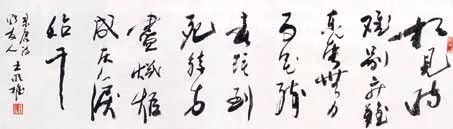 相見時
難別亦難
东風無力
百花殘
春蚕到
死絲方
盡蠟炬
成灰淚
始干
友人